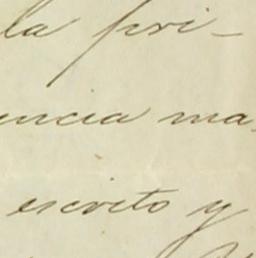 la pri-
encia ma
escrito y